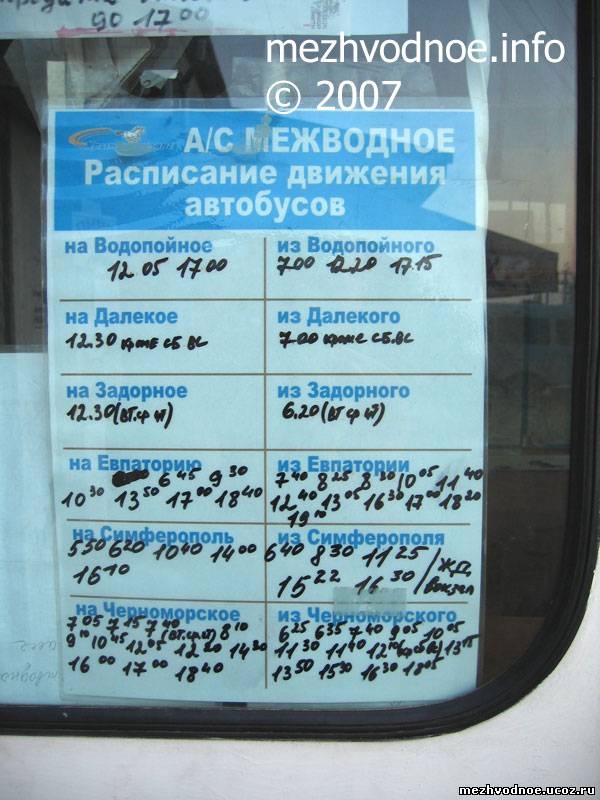 до 17 00
mezhvodnoe.info
© 2007
А/С МЕЖВОДНОЕ
Расписание движения
автобусов
на Водопойное
12 05 17 00
из Водопойного
7 00 12.20 17.15
на Далекое
12.30 кроме СБ.ВС
из Далекого
7.00 кроме СБ.ВС
на Задорное
12.30 (ВТ.ЧТ)
из Задорного
6.20 (ВТ ЧТ)
на Евпаторию
6 45 9 30
10 30 13 50 17 00 18 40
из Евпатории
7 40 8 25 8 30 10 05 11 40
12 40 13 05 16 30 17 00 18 20
19 10
на Симферополь
5 50 6 20 10 40 14 00
16 10
из Симферополя
6 40 8 30 11 25
15 22 16 30 / ЖД вокзал
на Черноморское
7 05 7 15 7 40
9 10 10 45 12 05 12 20 14 30
8 10
16 00 17 00 18 40
из Черноморского
6 25 6 35 7 40 9 05 10 05
11 30 11 40 12 10 13 15
13 50 15 30 16 30 18 05
mezhvodnoe.ucoz.ru